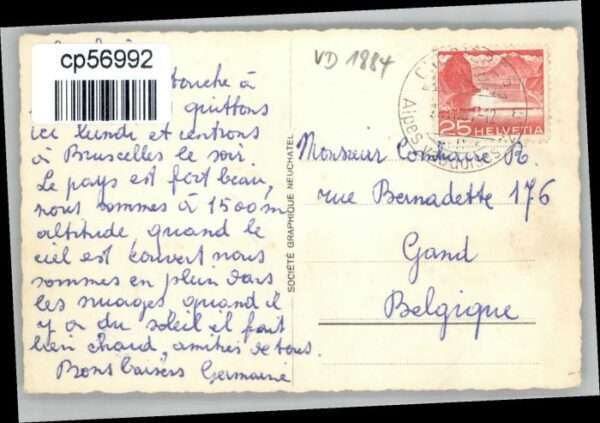 cp56992
VD 1884
touche à
quittons
ici lundi et rentrons
à Bruxelles le soir.
Le pays est fort beau,
nous sommes à 1500m
altitude, quand le
ciel est couvert nous
sommes en plein dans
les nuages, quand il
y a du soleil il fait
bien chaud, amitiés de tous.
Bons baisers Germaine
SOCIÉTÉ GRAPHIQUE NEUCHATEL
25 HELVETIA
Monsieur R.
rue Bernadette 176
Gand
Belgique